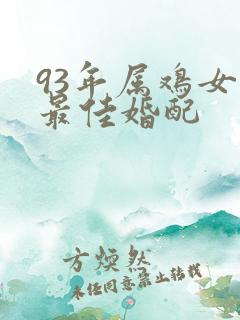 93年属鸡女
最佳婚配
方煐然
未经同意禁止转载